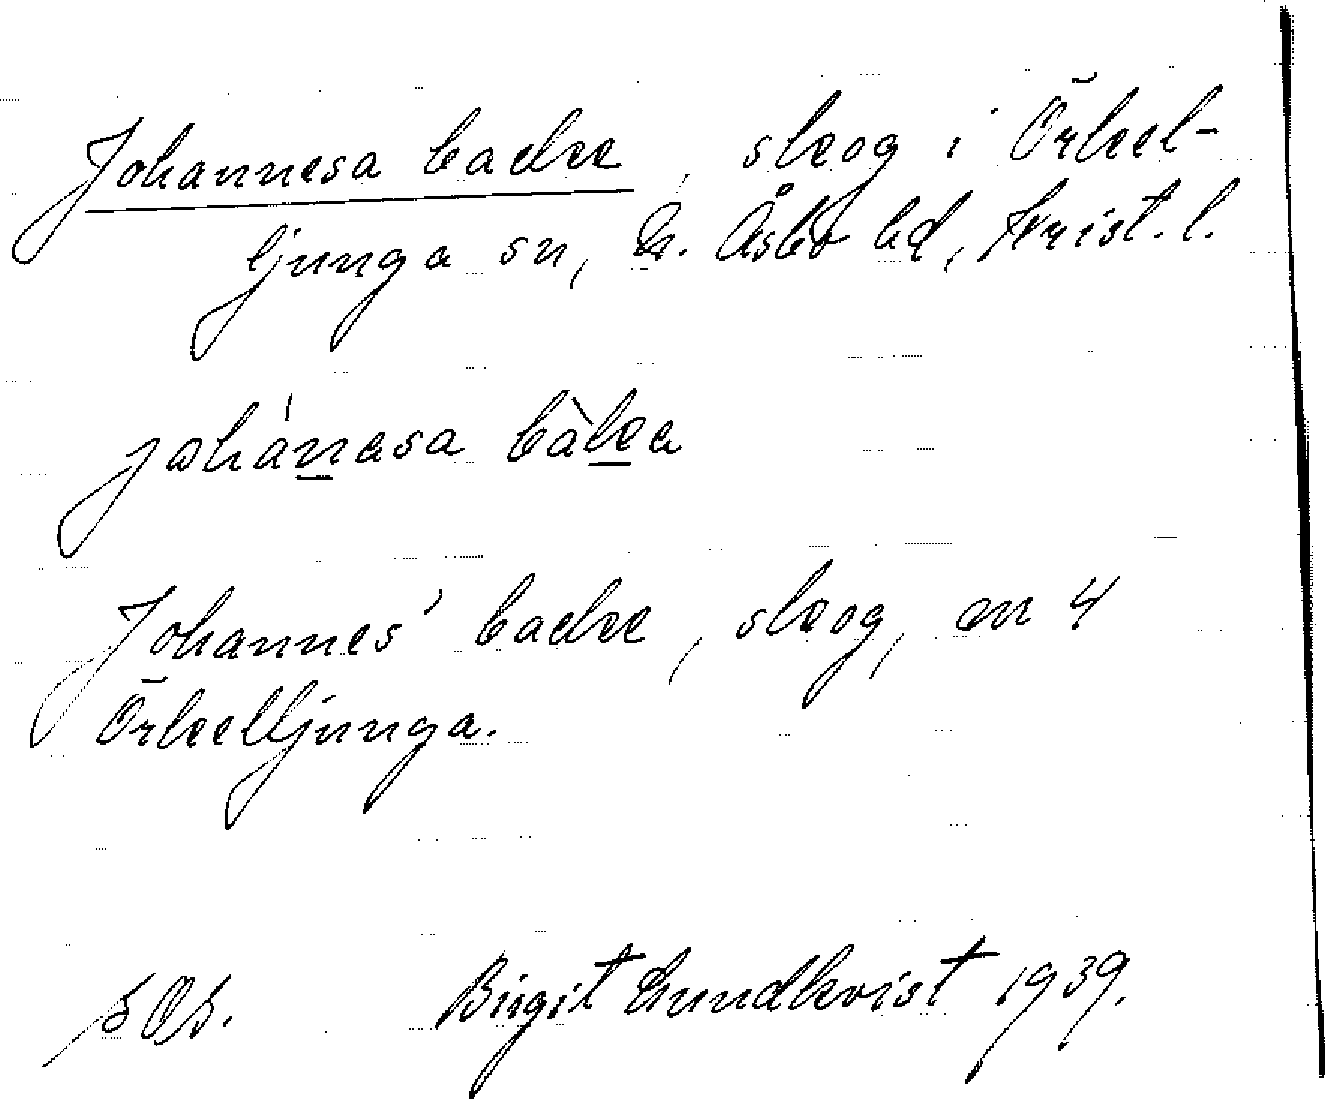 Johannesa backe, skog i Örkel-
ljunga sn, N. Åsbo hd, Krist. l.
johánasa bàka
Johannes' backe, skog, en 4
Örkelljunga.
Birgit Lundkvist 1939.